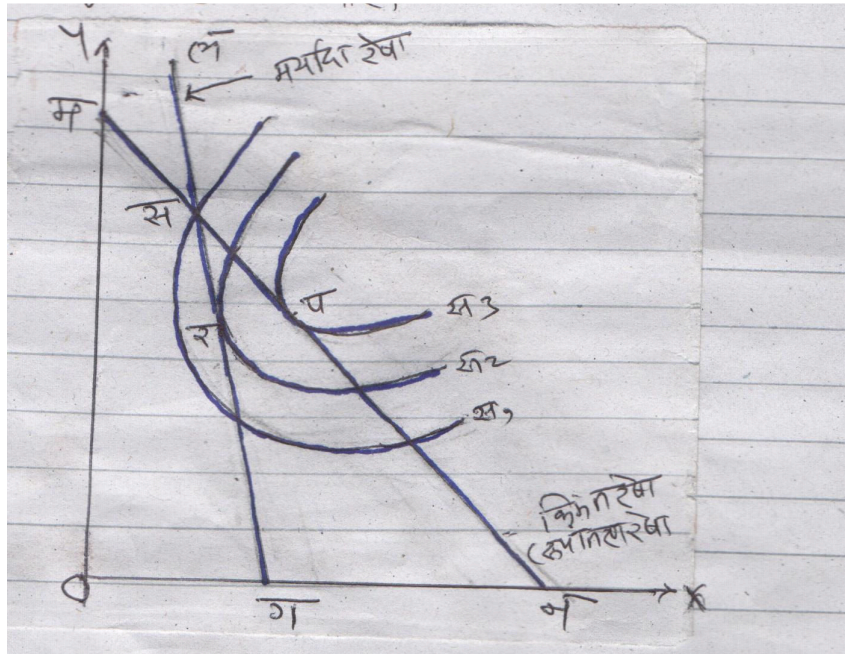 Y
ल
मर्यादा रेषा
म
स
प
स३
र
स२
स१
किंमत रेषा
रूपांतरण रेषा
O
ग
न
X